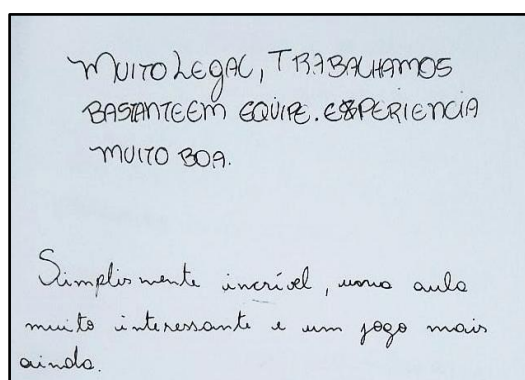 MUITO LEGAL, TRABALHAMOS
BASTANTE EM EQUIPE. EXPERIENCIA
MUITO BOA.
Simplismente incrível, uma aula
muito interessante e um jogo mais
ainda.